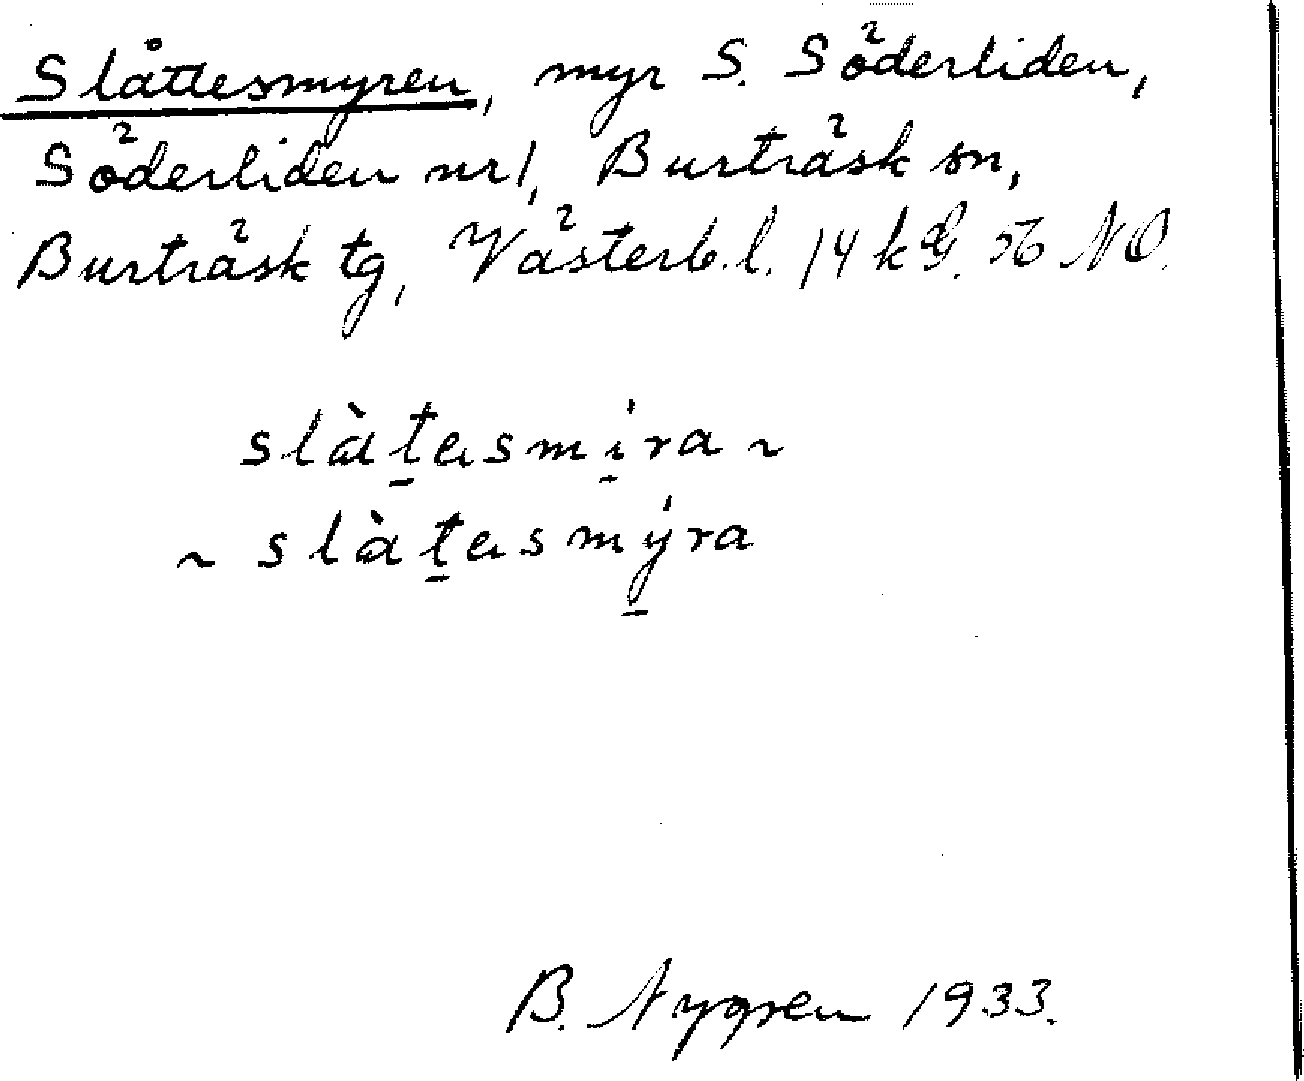 Slåttesmyren, myr S. Söderliden,
Söderliden nr 1, Burträsk sn,
Burträsk tg, Västerb. l. 14 k NO.
slàt̠asmi̠ra ~
~ slàt̠asmý̠ra
B. Nygren 1933.